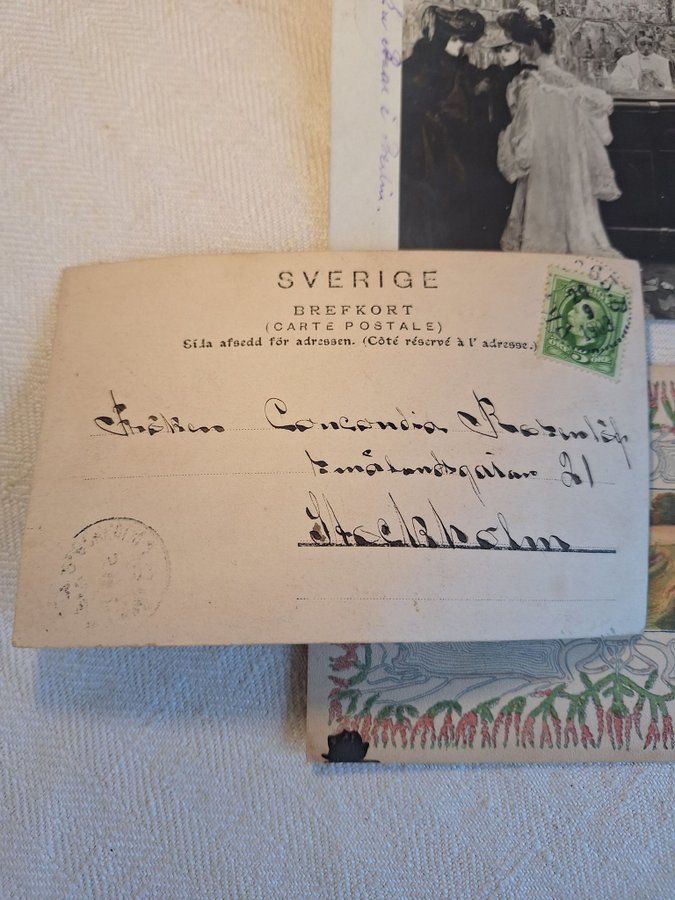 i Berlin.
SVERIGE
BREFKORT
(CARTE POSTALE)
Sida afsedd för adressen. (Côté réservé à l' adresse.)
Fröken Concordia Rosenlöf
Smålandsgatan 21
Stockholm